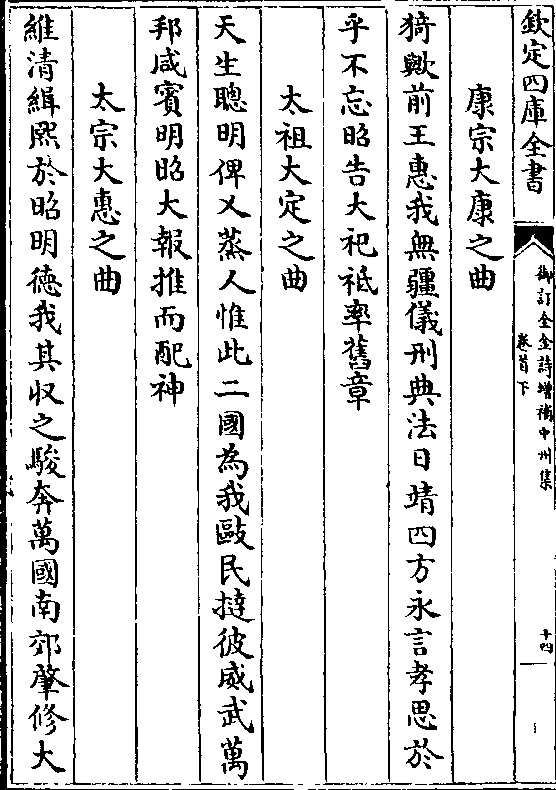 欽定四庫全書
御訂全金詩增補中州集
卷首下
十四
康宗大康之曲
猗歟前王惠我無疆儀刑典法日靖四方永言孝思於
乎不忘昭告大祀祗率舊章
太祖大定之曲
天生聰明俾乂蒸人惟此二國為我敺民撻彼威武萬
邦咸賓明昭大報推而配神
太宗大惠之曲
維清緝熙於昭明德我其収之駿奔萬國南郊肇修大